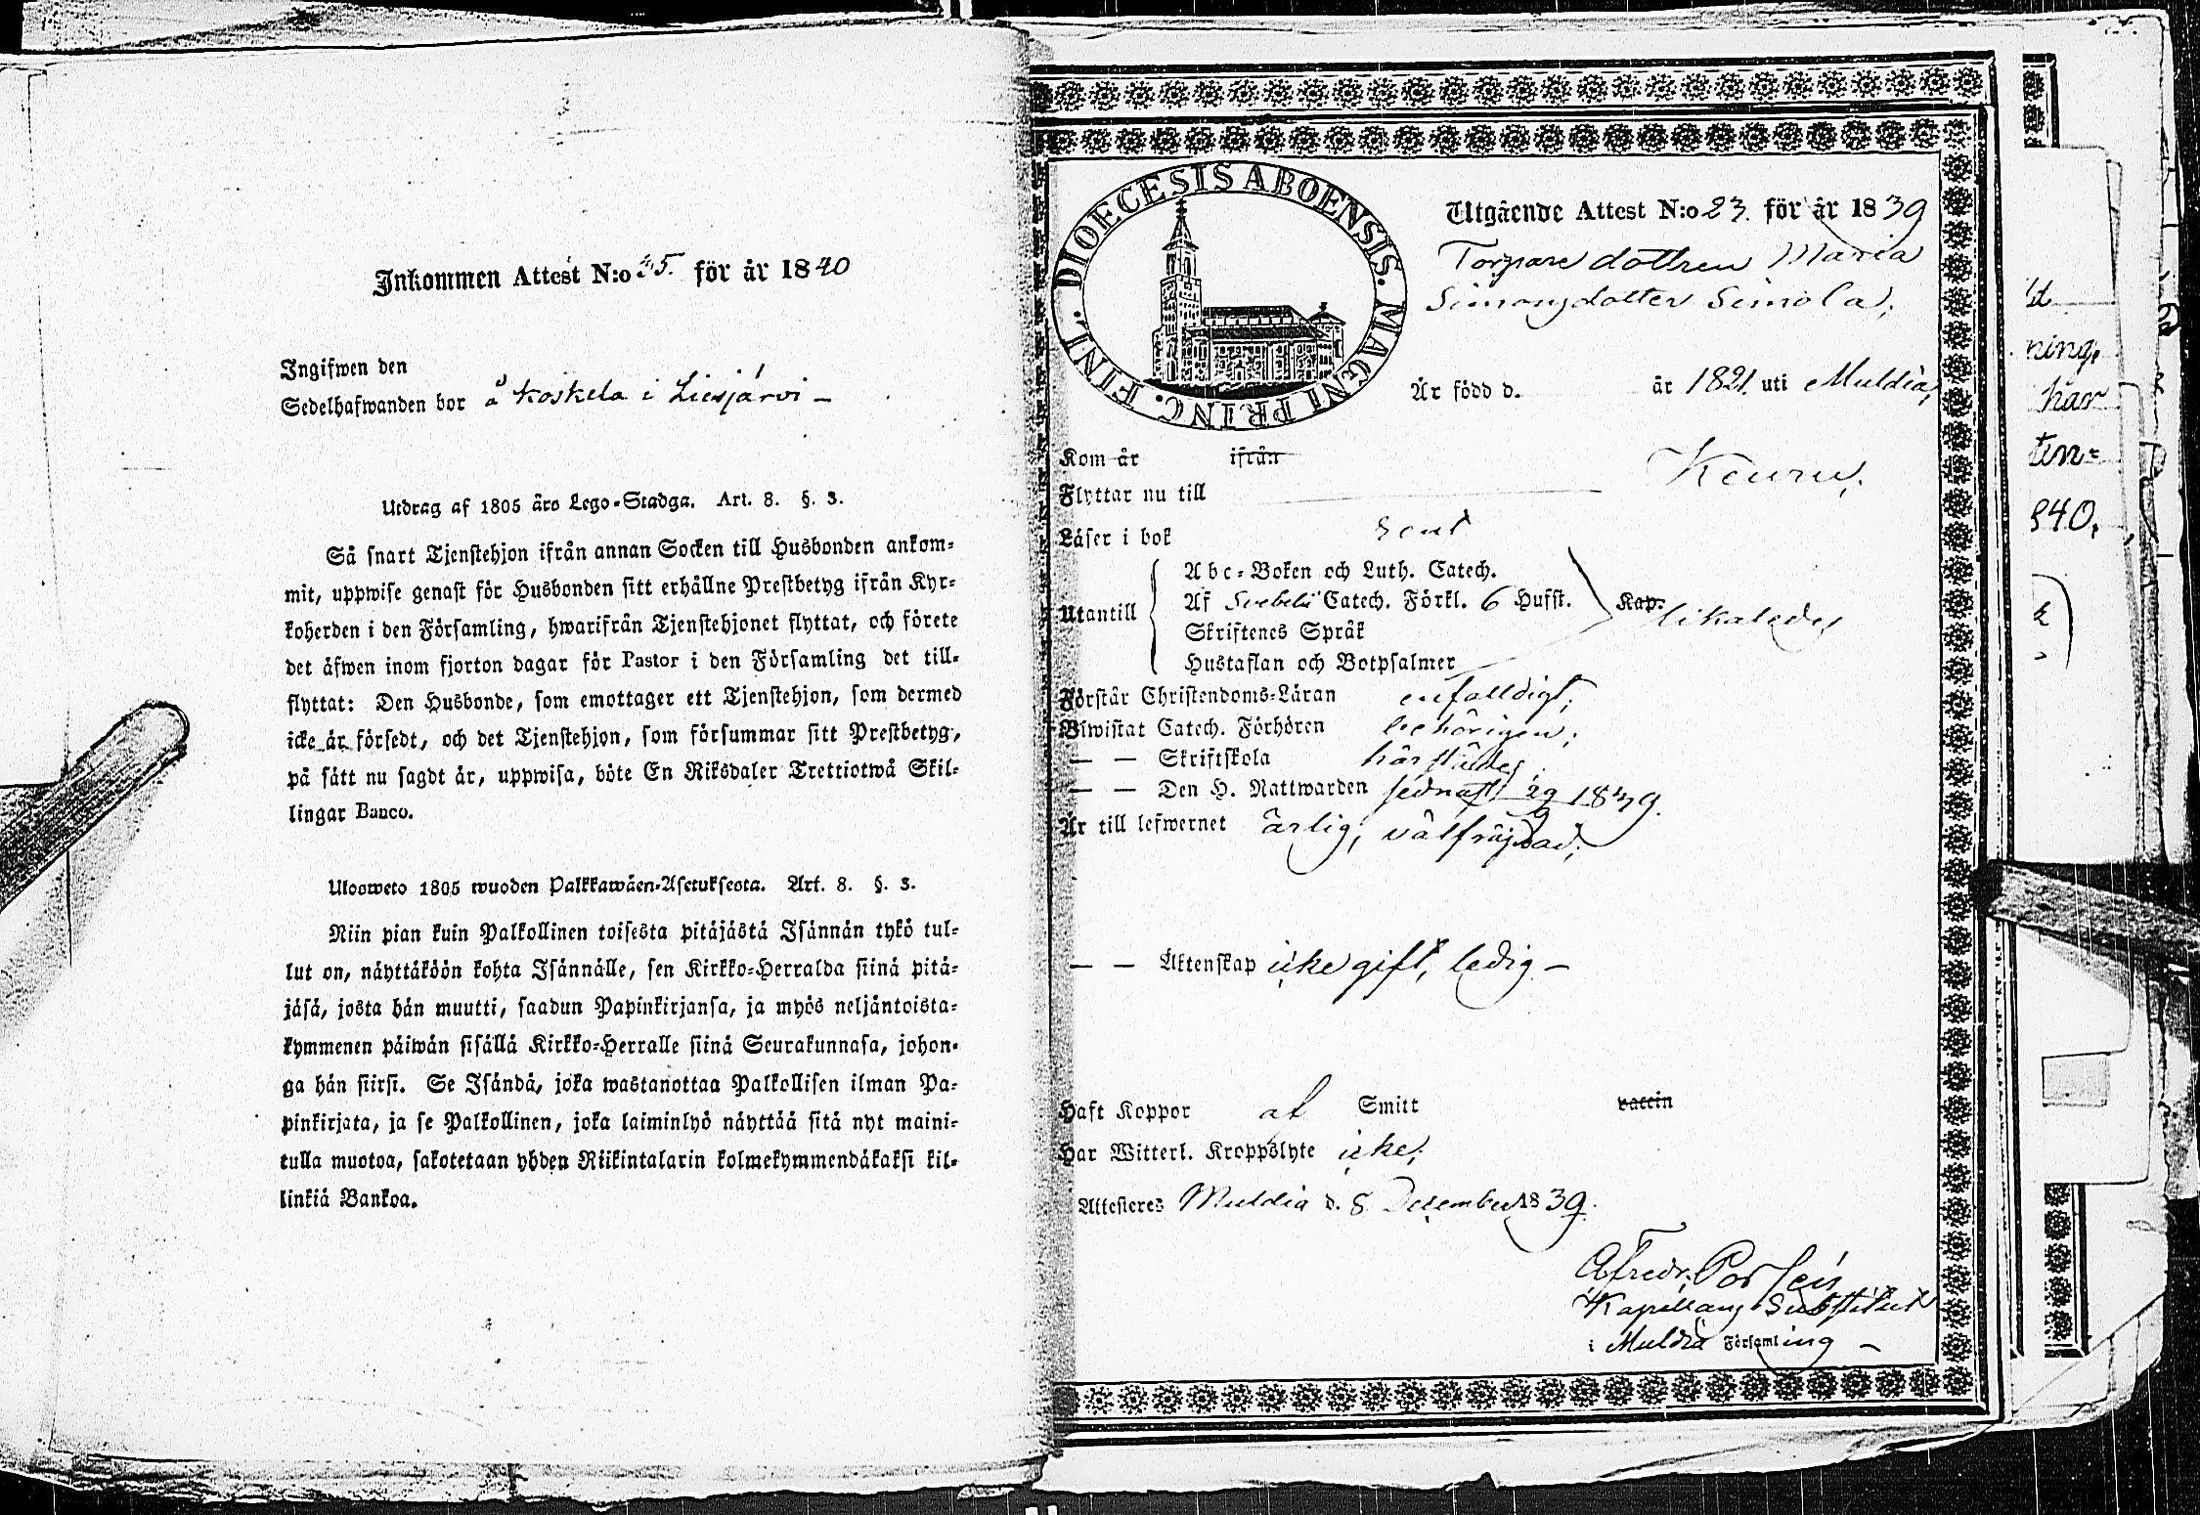 Inkommen Attest N:o 35. för år 1840
Ingifwen den
Sedelhafwanden bor å Koskela i Liesjärvi –
Utdrag af 1805 års Lego-Stadga. Art. 8. §. 3.
Så snart Tjenstehjon ifrån annan Socken till Husbonden ankom-
mit, uppwise genast för Husbonden sitt erhållne Prestbetyg ifrån Kyr-
koherden i den Församling, hwarifrån Tjenstehjonet flyttat, och förete
det äfwen inom fjorton dagar för Pastor i den Församling det till-
flyttat: Den Husbonde, som emottager ett Tjenstehjon, som dermed
icke är försedt, och det Tjenstehjon, som försummar sitt Prestbetyg,
på sätt nu sagdt är, uppwisa, böte En Riksdaler Trettiotwå Skil-
lingar Banco.
Ulosweto 1805 wuoden Palkkawäen-Asetuksesta. Art. 8. §. 3.
Niin pian kuin Palkollinen toisesta pitäjästä Isännän tykö tul-
lut on, näyttäköön kohta Isännälle, sen Kirkko-Herralda siinä pitä-
jäsä, josta hän muutti, saadun Papinkirjansa, ja myös neljäntoista-
kymmenen päiwän sisällä Kirkko-Herralle siinä Seurakunnasa, johon-
ga hän siirsi. Se Isändä, joka wastanottaa Palkollisen ilman Pa-
pinkirjata, ja se Palkollinen, joka laiminlyö näyttää sitä nyt maini-
tulla muotoa, sakotetaan yhden Riikintalarin kolmekymmendäkaksi kil-
linkiä Bankoa.
DIOECESIS ABOENSIS. MAGNI PRINC. FINL.
Utgående Attest N:o 23. för år 1839
Torpare dottren Maria
Simonsdotter Simola,
Är född d. år 1821. uti Muldia,
Kom år ifrån
Flyttar nu till Keuru,
Läser i bok
Utantill
Abc-Boken och Luth. Catech.
Af Svebelii Catech. Förkl. 6 Hufst.
Skriftenes Språk
Hustaflan och Botpsalmer
Kap. likaledes
Förstår Christendoms-Läran enfaldigt,
Biwistat Catech. Förhören behörigen,
— — Skriftskola härstädes
— — Den H. Nattwarden sednast 1839.
Är till lefwernet ärlig, välfräjdad,
— — Äktenskap icke gift, ledig –
Haft Koppor af Smitt vaccin
Har Witterl. Kroppslyte icke,
Attesteres Muldia d. 8 December 1839.
Kapellans Substitut
i Muldia Församling –
st
ning,
har
ten=
840,